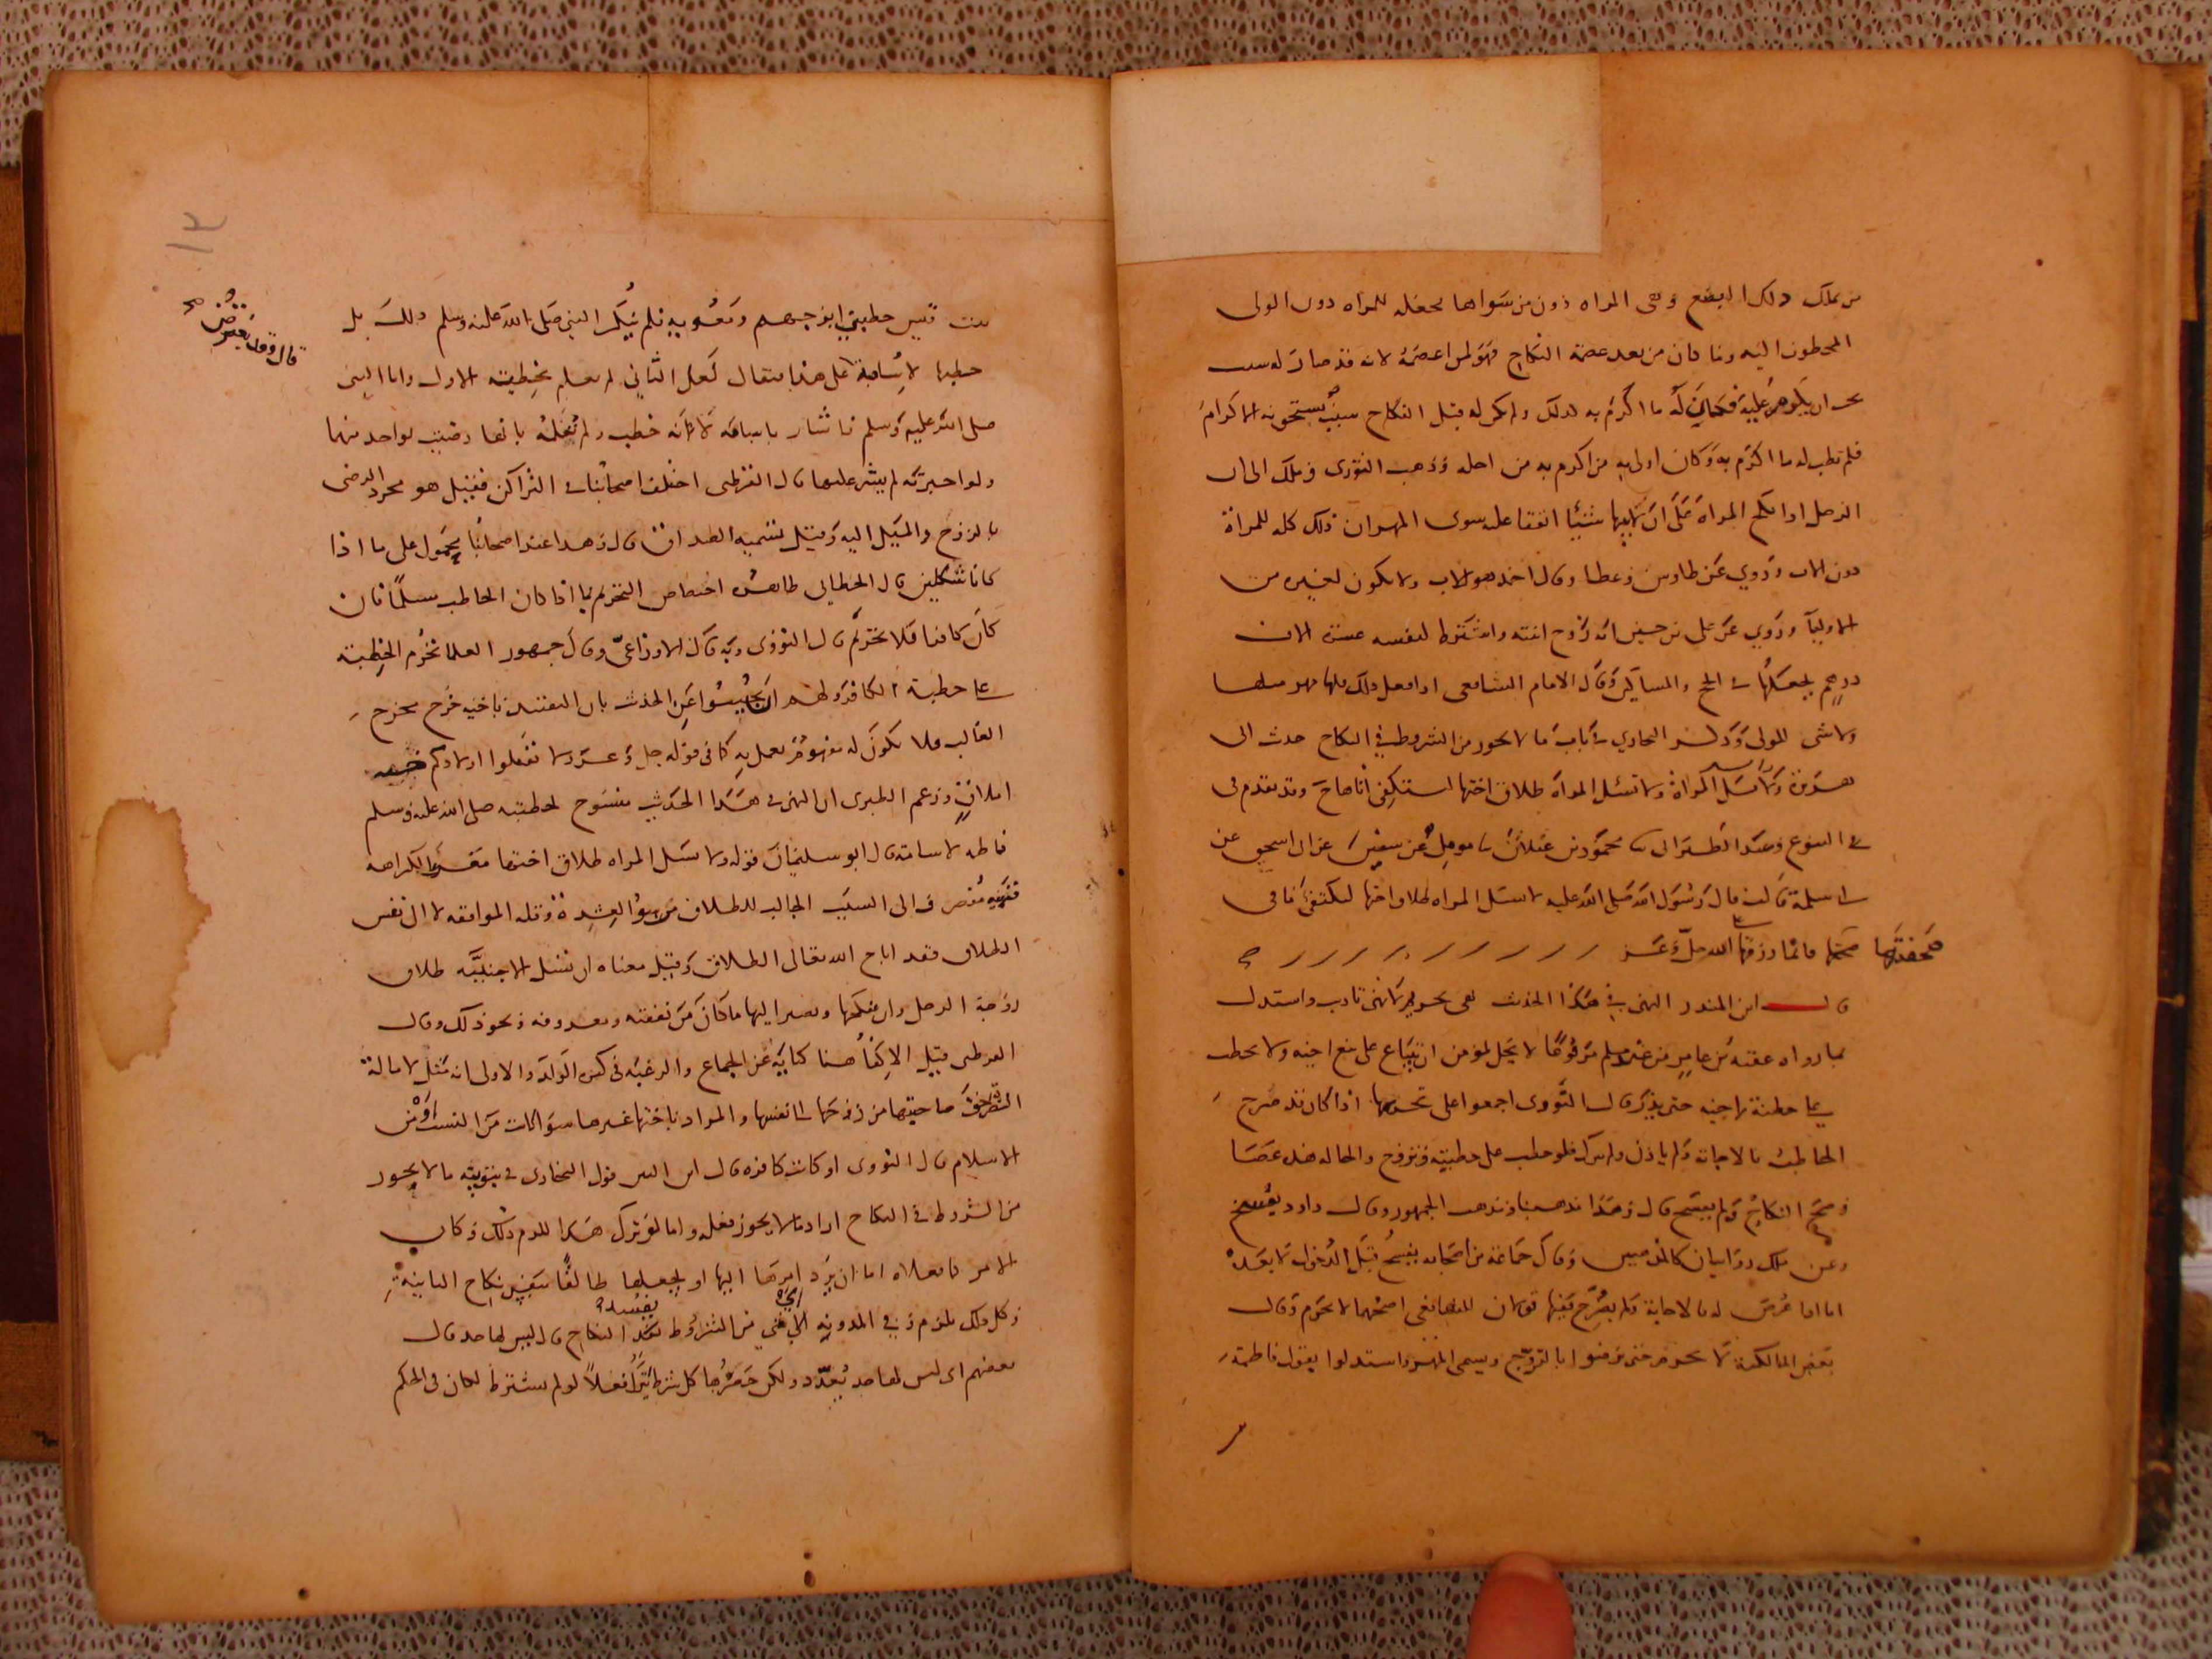 من يملك ذلك البضع وهى المراه دون من سواها يجعله للمراه دون الولى
المخطوب اليه وما كان من بعد عصمة النكاح فهو لمن اعصمه لانه قد صار له سبب
يجب ان يكرم عليه فكان له ما اكرم به لذلك ولم يكن له قبل النكاح سبب يستحق به الاكرام
فلم يطب له ما اكرم به وكان اولى به من اكرم به من اجله وذهب الثورى ومالك الى ان
الرجل اذا نكح المراة على ان لابيها شيئا اتفقا عليه سوى المهر ان ذلك كله للمراة
دون الاب وروي عن طاوس وعطا وقال احمد هو للاب ولا يكون لغيره من
الاوليا وروي عن على بن حسين انه زوج ابنته واشترط لنفسه عشرة الاف
درهم يجعلها في الحج والمساكين وقال الامام الشافعى اذا فعل ذلك فلها مهر مثلها
ولا شى للولى وذكر البخاري في باب ما لا يجوز من الشروط في النكاح حديث ابى
هريرة ولا تسئل المراة طلاق اختها لتستكفئ اناها وقد تقدم فى
في البيوع وعند الطبرانى محمود بن غيلان مومل عن سفين عن ابى اسحق عن
ابى سلمة قالت قال رسول الله صلى الله عليه لا تسئل المراه طلاق اختها لتكتفئ ما فى
صحفتها فانما رزقها على الله جل وعز
قال ابن المنذر النهى في هذا الحديث نهى تحريم لا نهى تاديب واستدل
بما رواه عقبة بن عامر من عند مسلم مرفوعا لا يحل لمومن ان يبتاع على بيع اخيه ولا يخطب
على خطبة اخيه حتى يذر قال النووى اجمعوا على تحريمها اذا كان قد صرح
الخاطب بالاجابة ولم ياذن ولم يترك فلو خطب على خطبته وتزوج والحالة هذه عصا
وصح النكاح ولم يفسخ قال وهذا مذهبنا ومذهب الجمهور وقال داود يفسخ
وعن ملك روايتان كالمذهبين وقال جماعة من اصحابه يفسخ قبل الدخول لا بعده
اما اذا عرض له بالاجابة ولم يصرح ففيها قولان للشافعى اصحهما لا يحرم وقال
بعض المالكية لا يحرم حتى يرضوا بالتزويج ويسمى المهر واستدلوا بقول فاطمة
بنت قيس خطبني ابو جهم ومعوية فلم ينكر النبى صلى الله عليه وسلم ذلك بل
خطبها لاسامة على هذا قال فقد يعترض فيقال لعل الثاني لم يعلم بخطبة الاول واما النبى
صلى الله عليه وسلم فاشار باسامة لا انه خطب ولم تعلمه بانها رضيت بواحد منهما
ولو اخبرته لم يشر عليها قال القرطبى اختلف اصحابنا في التراكن فقيل هو مجرد الرضى
بالزوج والميل اليه وقيل تسميه الصداق قال وهذا عند اصحابنا محمول على ما اذا
كانا شكلين قال الخطابى ظاهره اختصاص التحريم بما اذا كان الخاطب مسلما فان
كان كافرا فلا تحرم قال النووى وبه قال الاوزاعى وقال جمهور العلما تحرم الخطبة
على خطبة الكافر ولهم ان يجيبوا عن الحديث بان التقييد باخيه خرج مخرج
الغالب فلا يكون له مفهوم يعمل به كما فى قوله جل وعز ولا تقتلوا اولادكم خشية
املاق وزعم الطبرى ان النهى في هذا الحديث منسوخ لخطبته صلى الله عليه وسلم
فاطمه لاسامة قال ابو سليمان قوله ولا تسئل المراه طلاق اختها
الى السبب الجالب للطلاق من سوء العشرة وقلة الموافقه لا الى نفس
الطلاق فقد اباح الله تعالى الطلاق وقيل معناه ان تسئل الاجنبية طلاق
زوجة الرجل وان ينكحها ويصير اليها ما كان من نفقته ومعروفه ونحو ذلك وقال
القرطبى قيل الاكفا هنا كناية عن الجماع والرغبه فى كثرة الولد والاولى انه مثل لامالة
الضرة حق صاحبتها من زوجها الى نفسها والمراد باختها غيرها سوا كانت من النسب او من
الاسلام قال النووى او كانت كافره قال ابن التين قول البخارى في تبويبه ما لا يجوز
من الشروط في النكاح اراد ما لا يجوز فعله واما لو ترك هذا للزم ذلك وكان
الامر كما فعلاه اما ان يرد امرها اليها او يجعلها طالقا بنفس نكاح الثانية
وكل ذلك يلزم وفي المدونه اى شي من الشروط يفسد به النكاح قال ليس لها حد قال
بعضهم اى ليس لها حد يعدد ولكن حصرها كل شرط